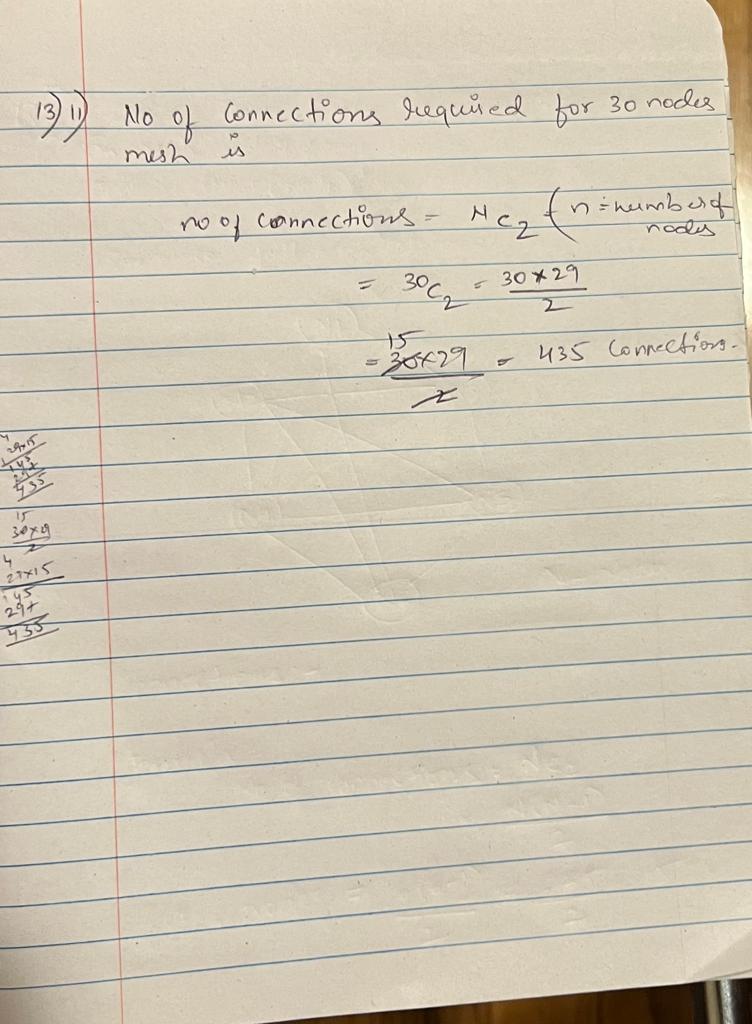 13) 11) No of Connections required for 30 nodes
mesh is
no of connections = N C 2 { n = number of
nodes
= 30 C 2 = 30 * 29
2
15
= 30 × 29 = 435 Connections.
2
4
29×15
145
29+
435
15
30×29
2
4
29×15
145
29+
435